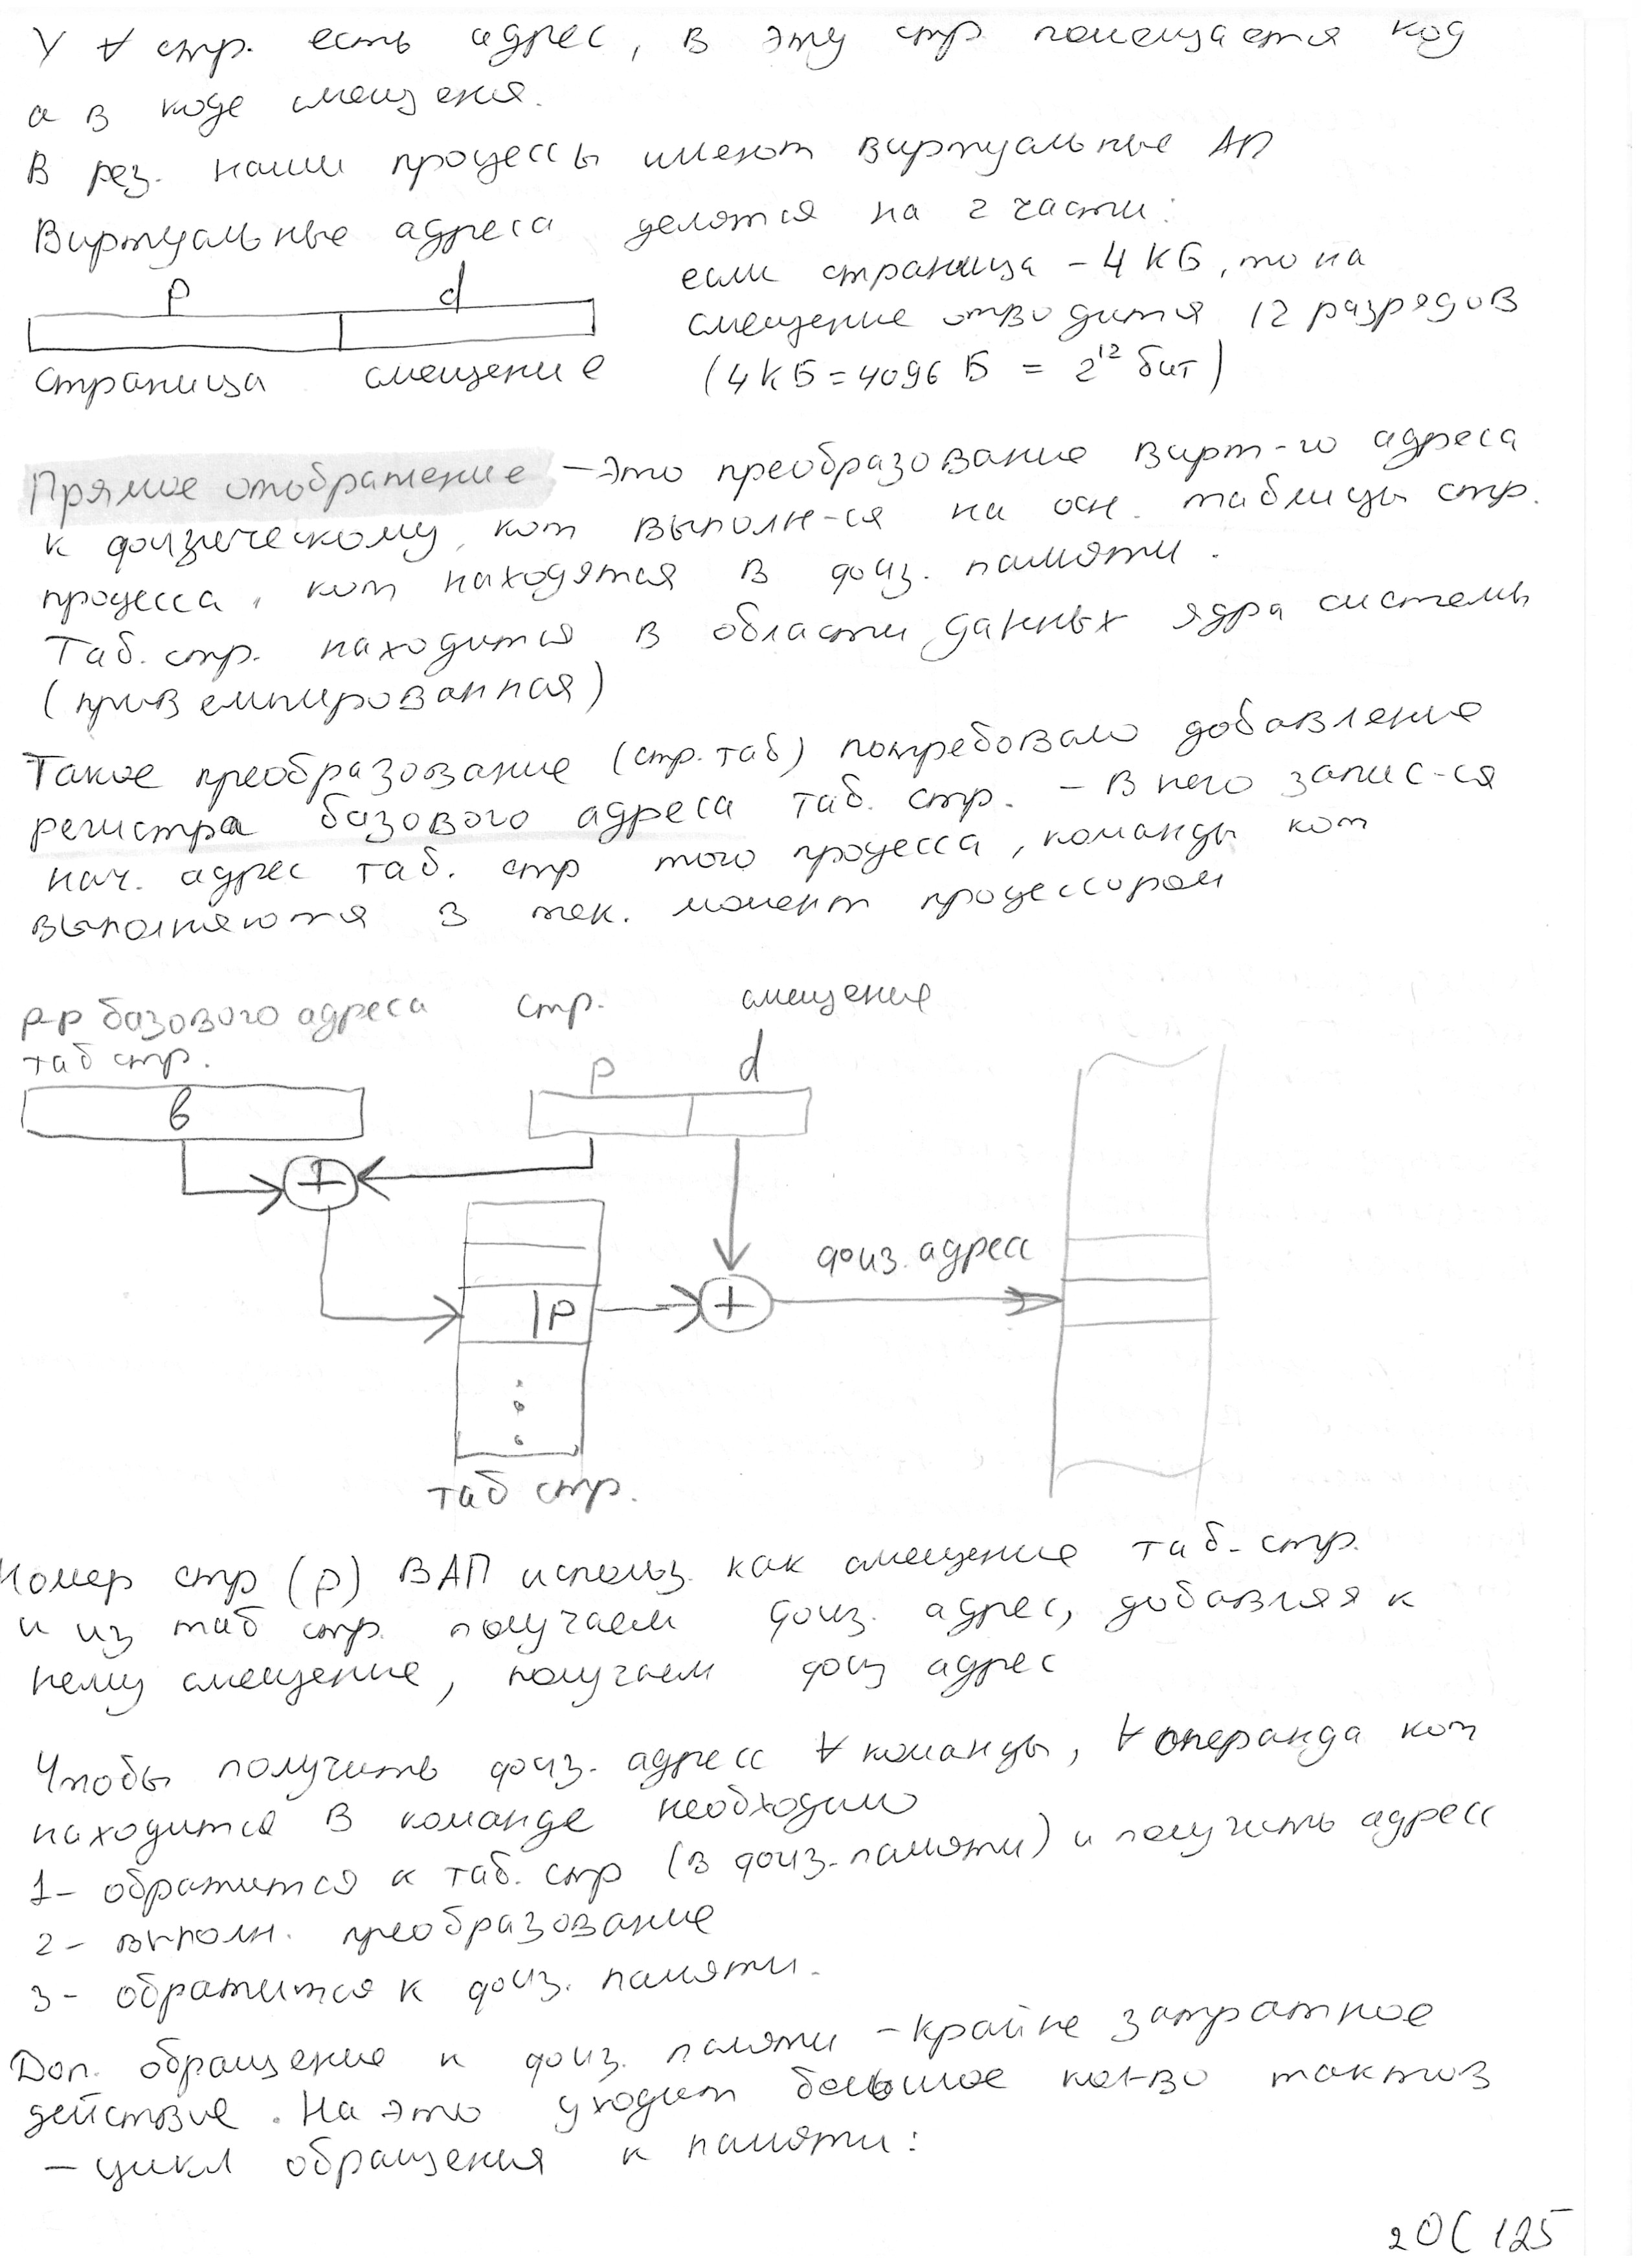 У ∀ стр. есть адрес, в эту стр помещается код
а в коде смещения.
В рез. наши процессы имеют виртуальные АП
Виртуальные адреса делятся на 2 части:
p d
страница смещение
если страница - 4 КБ, то на
смещение отводится 12 разрядов
(4КБ = 4096 Б = 2^12 бит)
Прямое отображение - это преобразование вирт-го адреса
к физическому, кот выполн-ся на осн. таблицы стр.
процесса, кот находятся в физ. памяти.
Таб. стр. находится в области данных ядра системы
Такое преобразование (стр. таб) потребовало добавление
регистра базового адреса таб. стр. - в него запис-ся
нач. адрес таб. стр того процесса, команды кот
выполняются в тек. момент процессором
р-р базового адреса
таб стр.
стр. смещение
b
p d
+
p
+
физ. адрес
таб стр.
Номер стр (p) ВАП использ. как смещение таб. стр.
и из таб стр. получаем физ. адрес, добавляя к
нему смещение, получаем физ адрес
Чтобы получить физ. адресс ∀ команды, ∀ операнда кот
находится в команде необходимо
1- обратится к таб. стр (в физ. памяти) и получить адресс
2- выполн. преобразование
3- обратится к физ. памяти.
Доп. обращение к физ. памяти - крайне затратное
действие. На это уходит большое кол-во тактов
- цикл обращения к памяти:
2 ОС 125